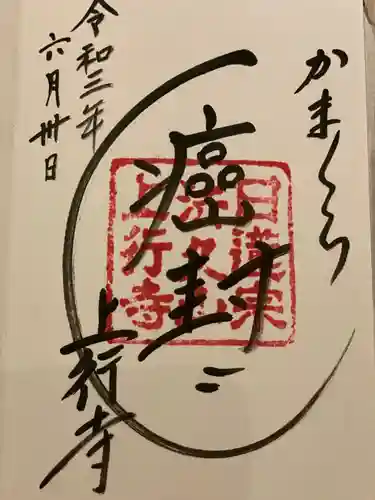 かまくら
癌封じ
上行寺
令和三年
六月卅日
日蓮宗
上行寺